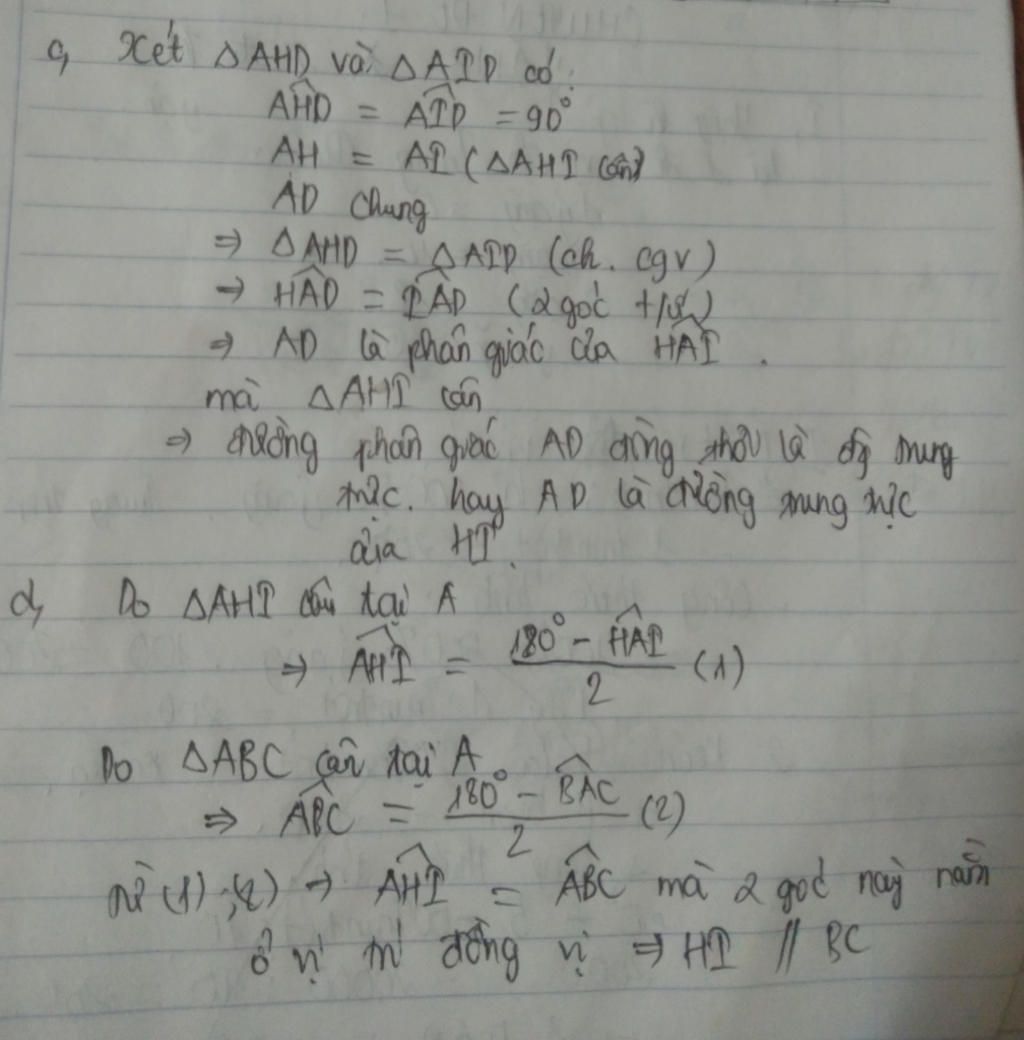 c, Xét △AHD và △AID có:
AHD = AID = 90°
AH = AI (△AHI cân)
AD chung
⇒ △AHD = △AID (ch. cgv)
→ HAD = IAD (2 góc t/ứ)
⇒ AD là phân giác của HAI.
mà △AHI cân
⇒ đường phân giác AD đồng thời là đg trung
trực. hay AD là đường trung trực
của HI.
d, Do △AHI cân tại A
⇒ AHI = (180° - HAI)/2 (1)
Do △ABC cân tại A
⇒ ABC = (180° - BAC)/2 (2)
Từ (1);(2) → AHI = ABC mà 2 góc này nằm
ở vị trí đồng vị ⇒ HI // BC